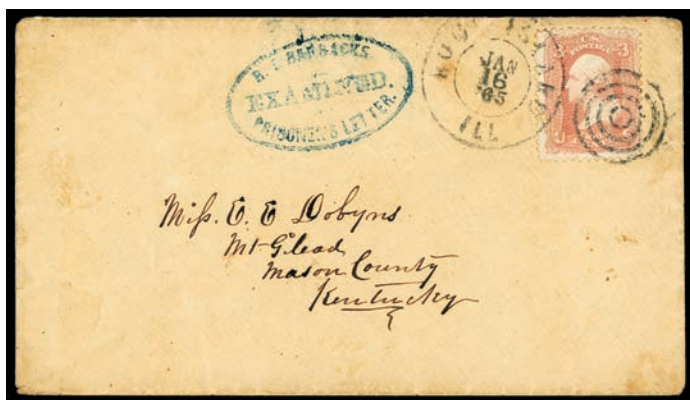 R. I. BARRACKS.
EXAMINED.
PRISONER'S LETTER.
ROCK ISLAND
JAN
16
'65
ILL
U.S.
POSTAGE
3
Miss. E. E Dobyns
Mt-Gilead
Mason County
Kentucky